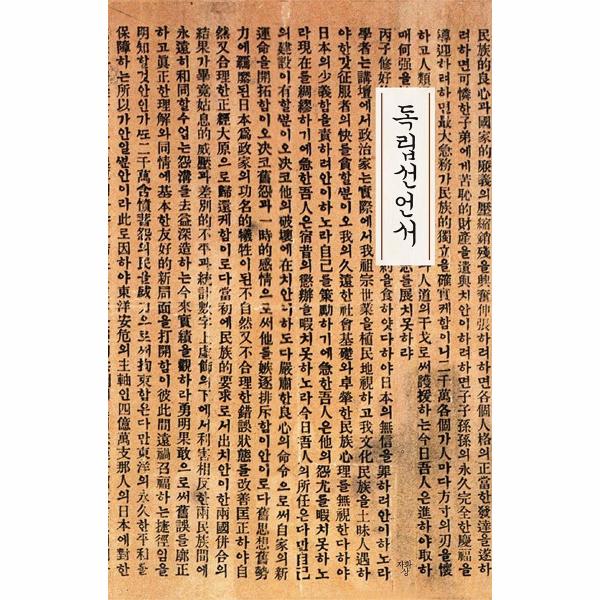 독립선언서
民族的良心과國家的廉義의壓縮銷殘을興奮伸張하려하면各個人格의正當한發達을遂하
려하면可憐한子弟에게苦恥的財產을遺與치안이하려하면子子孫孫의永久完全한慶福을
導迎하려하면最大急務가民族的獨立을確實케함이니二千萬各個가人마다方寸의刃을懷
하고人類 人道의干戈로써護援하는今日吾人은進하야取하
매何强을 意를展치못하랴
丙子修好 約을食하얏다하야日本의無信을罪하려안이하노라
學者는講壇에서政治家는實際에서我祖宗世業을植民地視하고我文化民族을土昧人遇하
야한갓征服者의快를貪할뿐이오我의久遠한社會基礎와卓犖한民族心理를無視한다하야
日本의少義함을責하려안이하노라自己를策勵하기에急한吾人은他의怨尤를暇치못하노
라現在를綢繆하기에急한吾人은宿昔의懲辦을暇치못하노라今日吾人의所任은다만自己
의建設이有할뿐이오決코他의破壞에在치안이하도다嚴肅한良心의命令으로써自家의新
運命을開拓함이오決코舊怨과一時的感情으로써他를嫉逐排斥함이안이로다舊思想舊勢
力에羈縻된日本爲政家의功名的犧牲이된不自然又不合理한錯誤狀態를改善匡正하야自
然又合理한正經大原으로歸還케함이로다當初에民族的要求로서出치안이한兩國併合의
結果가畢竟姑息的威壓과差別的不平과統計數字上虛飾의下에서利害相反한兩民族間에
永遠히和同할수업는怨溝를去益深造하는今來實績을觀하라勇明果敢으로써舊誤를廓正
하고眞正한理解와同情에基本한友好的新局面을打開함이彼此間遠禍召福하는捷徑임을
明知할것안인가또二千萬含憤蓄怨의民을威力으로써拘束함은다만東洋의永久한平和를
保障하는所以가안일뿐안이라此로因하야東洋安危의主軸인四億萬支那人의日本에對한
자화상